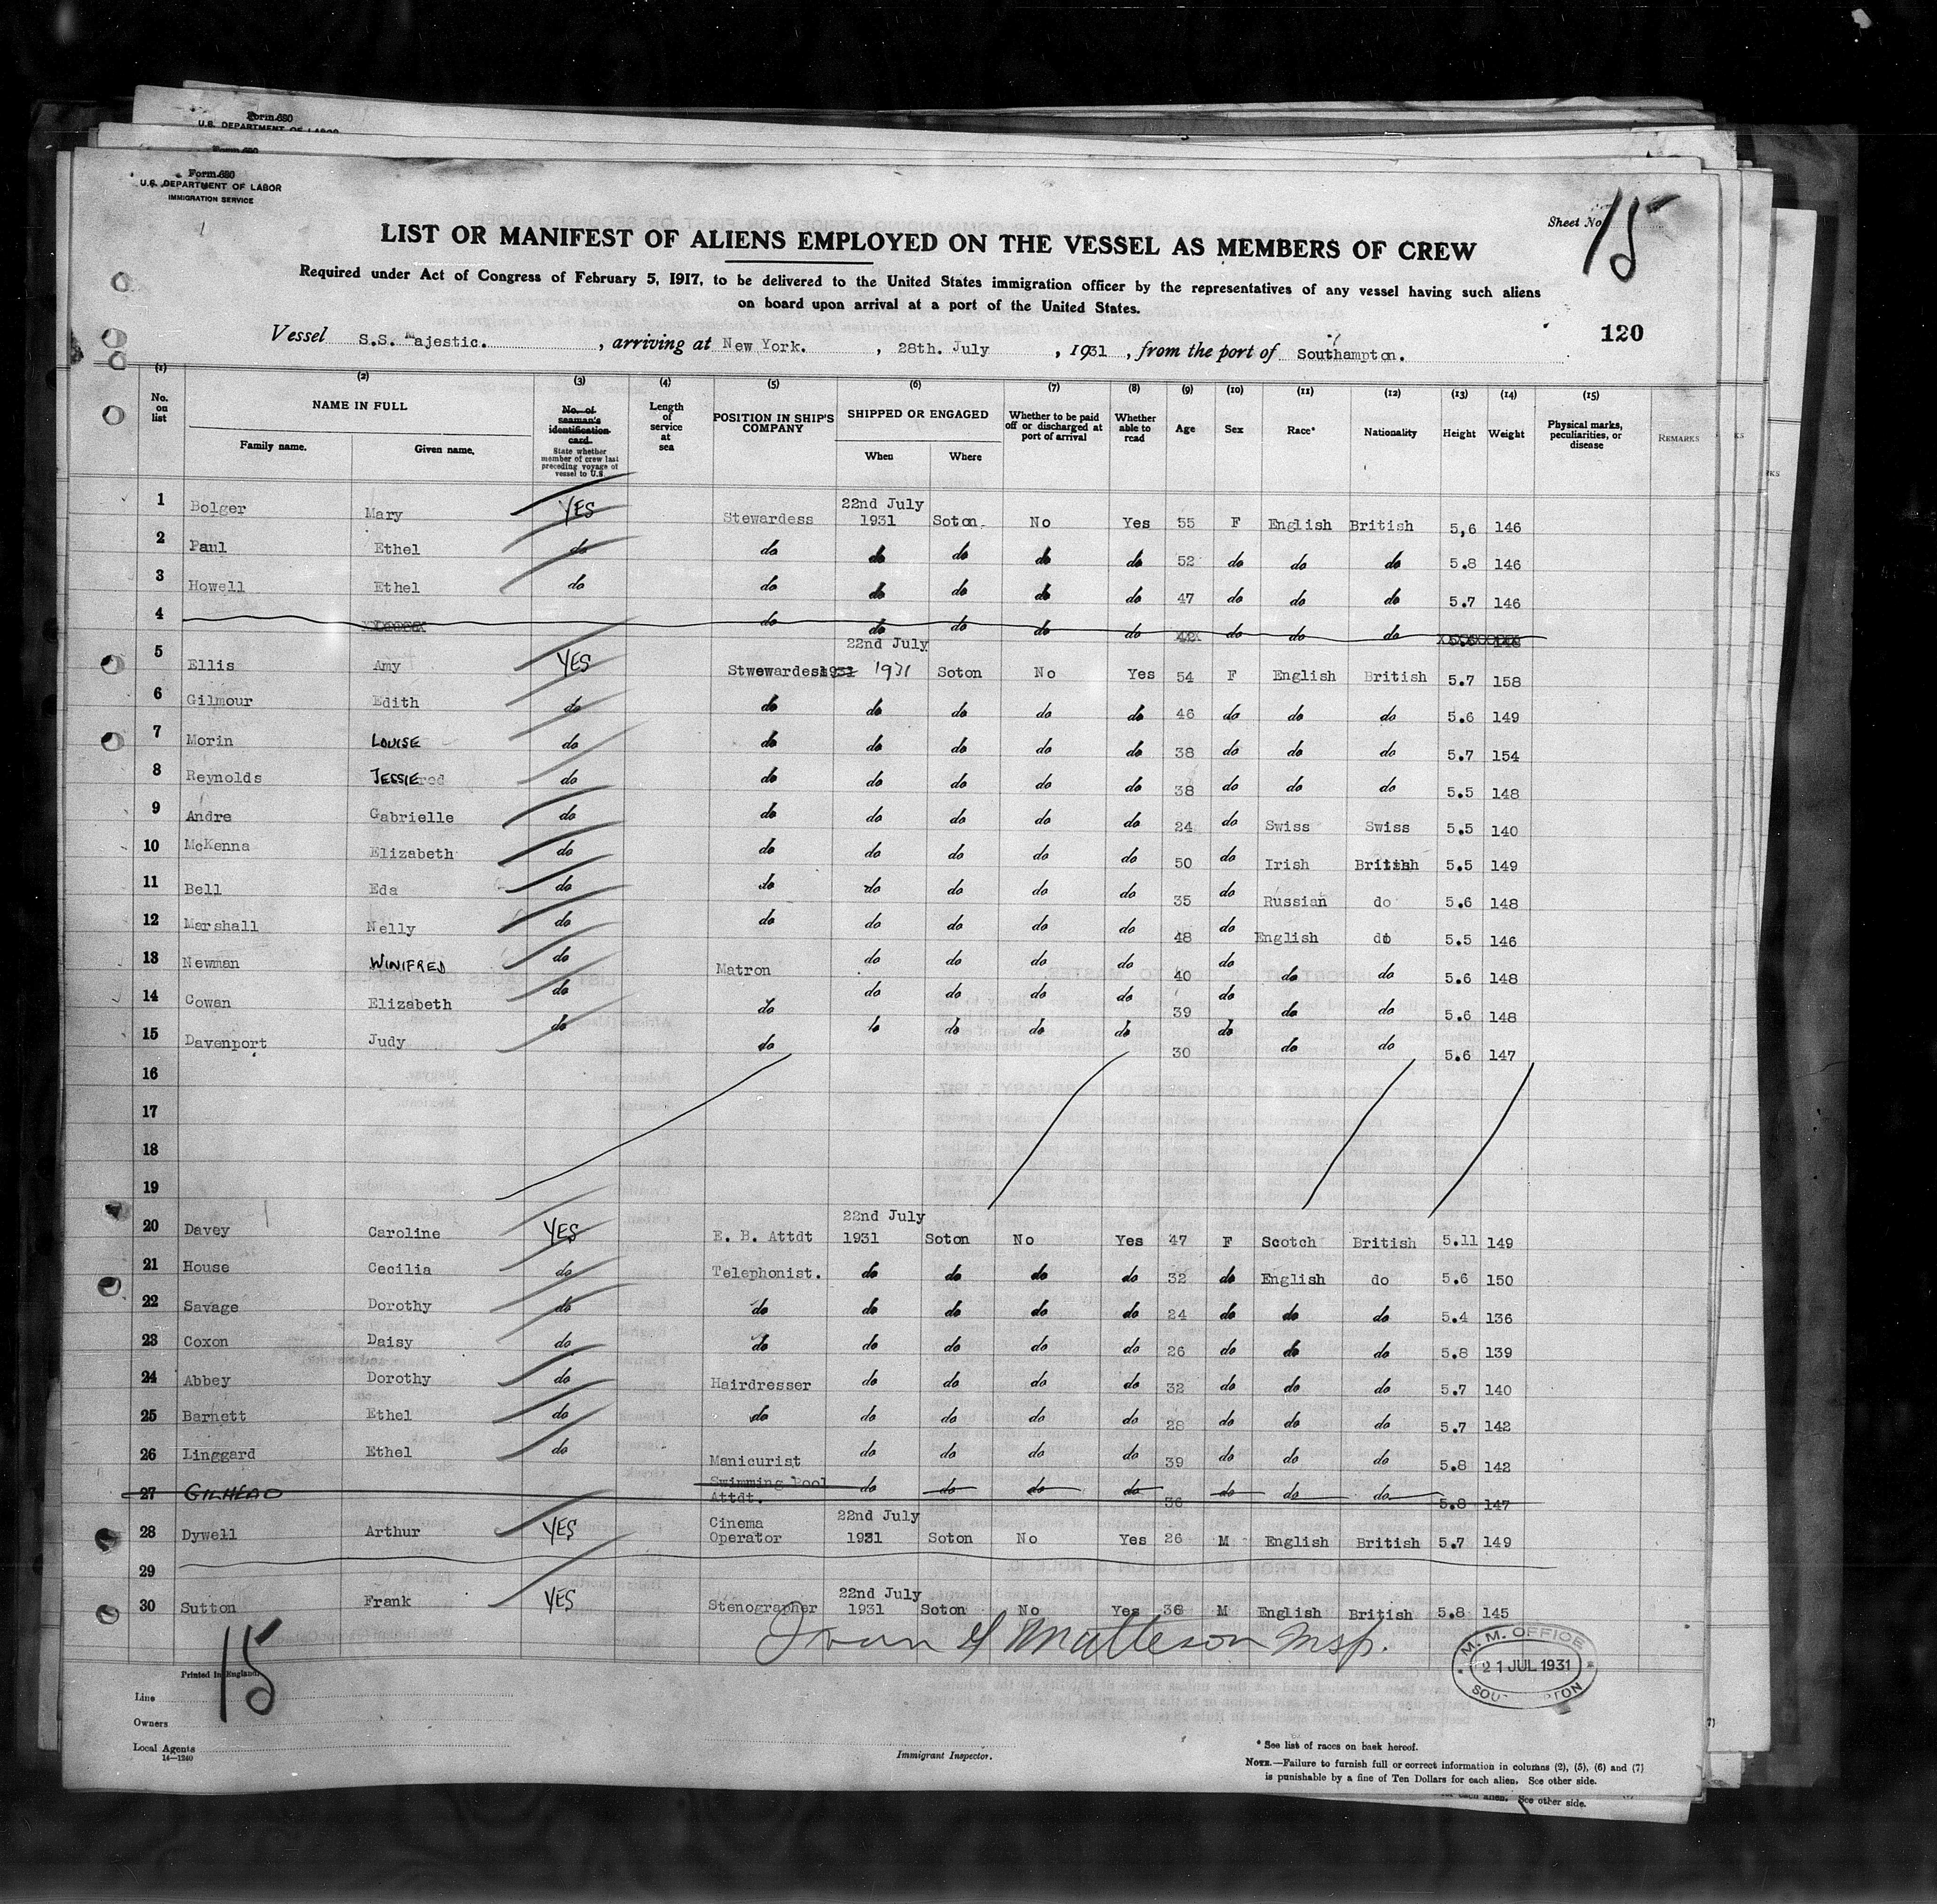 Form 680
U.S. DEPARTMENT OF LABOR
Form 680
Form 680
U.S. DEPARTMENT OF LABOR
IMMIGRATION SERVICE
Sheet No. 15
LIST OR MANIFEST OF ALIENS EMPLOYED ON THE VESSEL AS MEMBERS OF CREW
Required under Act of Congress of February 5, 1917, to be delivered to the United States immigration officer by the representatives of any vessel having such aliens
on board upon arrival at a port of the United States.
120
Vessel S.S. Majestic. , arriving at New York. , 28th. July , 1931 , from the port of Southampton.
(1) (2) (3) (4) (5) (6) (7) (8) (9) (10) (11) (12) (13) (14) (15)
No. on list NAME IN FULL Family name. Given name. No. of seaman's identification card. State whether member of crew last preceding voyage of vessel to U.S. Length of service at sea POSITION IN SHIP'S COMPANY SHIPPED OR ENGAGED When Where Whether to be paid off or discharged at port of arrival Whether able to read Age Sex Race* Nationality Height Weight Physical marks, peculiarities, or disease REMARKS
1 Bolger Mary YES Stewardess 22nd July 1931 Soton. No Yes 55 F English British 5,6 146
2 Paul Ethel do do do do do do 52 do do do 5.8 146
3 Howell Ethel do do do do do do 47 do do do 5.7 146
4 do do do do do 42 do do do 148
5 Ellis Amy YES Stwewardess 1931 22nd July 1931 Soton No Yes 54 F English British 5.7 158
6 Gilmour Edith do do do do do do 46 do do do 5.6 149
7 Morin LOUISE do do do do do do 38 do do do 5.7 154
8 Reynolds JESSIE do do do do do do 38 do do do 5.5 148
9 Andre Gabrielle do do do do do do 24 do Swiss Swiss 5.5 140
10 McKenna Elizabeth do do do do do do 50 do Irish British 5.5 149
11 Bell Eda do do do do do do 35 do Russian do 5.6 148
12 Marshall Nelly do do do do do do 48 do English do 5.5 146
13 Newman WINIFRED do Matron do do do do 40 do do do 5.6 148
14 Cowan Elizabeth do do do do do do 39 do do do 5.6 148
15 Davenport Judy do do do do do do 30 do do do 5.6 147
16
17
18
19
20 Davey Caroline YES E. B. Attdt 22nd July 1931 Soton No Yes 47 F Scotch British 5.11 149
21 House Cecilia do Telephonist. do do do do 32 do English do 5.6 150
22 Savage Dorothy do do do do do do 24 do do do 5.4 136
23 Coxon Daisy do do do do do do 26 do do do 5.8 139
24 Abbey Dorothy do Hairdresser do do do do 32 do do do 5.7 140
25 Barnett Ethel do do do do do do 28 do do do 5.7 142
26 Linggard Ethel do Manicurist do do do do 39 do do do 5.8 142
27 GILHEAD Swimming Pool Attdt. do do do do 36 do do do 5.8 147
28 Dywell Arthur YES Cinema Operator 22nd July 1931 Soton No Yes 26 M English British 5.7 149
29
30 Sutton Frank YES Stenographer 22nd July 1931 Soton No Yes 36 M English British 5.8 145
Matteson Insp.
M. M. OFFICE
21 JUL 1931
15
Printed in England.
Line
Owners
Local Agents
14—1240
Immigrant Inspector.
* See list of races on back hereof.
NOTE.—Failure to furnish full or correct information in columns (2), (5), (6) and (7)
is punishable by a fine of Ten Dollars for each alien. See other side.
for each alien. See other side.